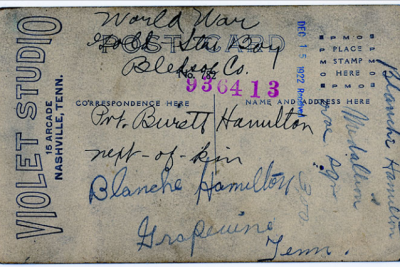 World War
Gold Star Boy
Bledsoe Co.
POST CARD
No. 782
936413
DEC 15 1922 Rec'd
PLACE
STAMP
HERE
VIOLET STUDIO
15 ARCADE
NASHVILLE, TENN.
CORRESPONDENCE HERE
NAME AND ADDRESS HERE
Pvt. Burett Hamilton
next-of-kin
Blanche Hamilton
Grapevine
Tenn.
Blanche Hamilton
Medallion